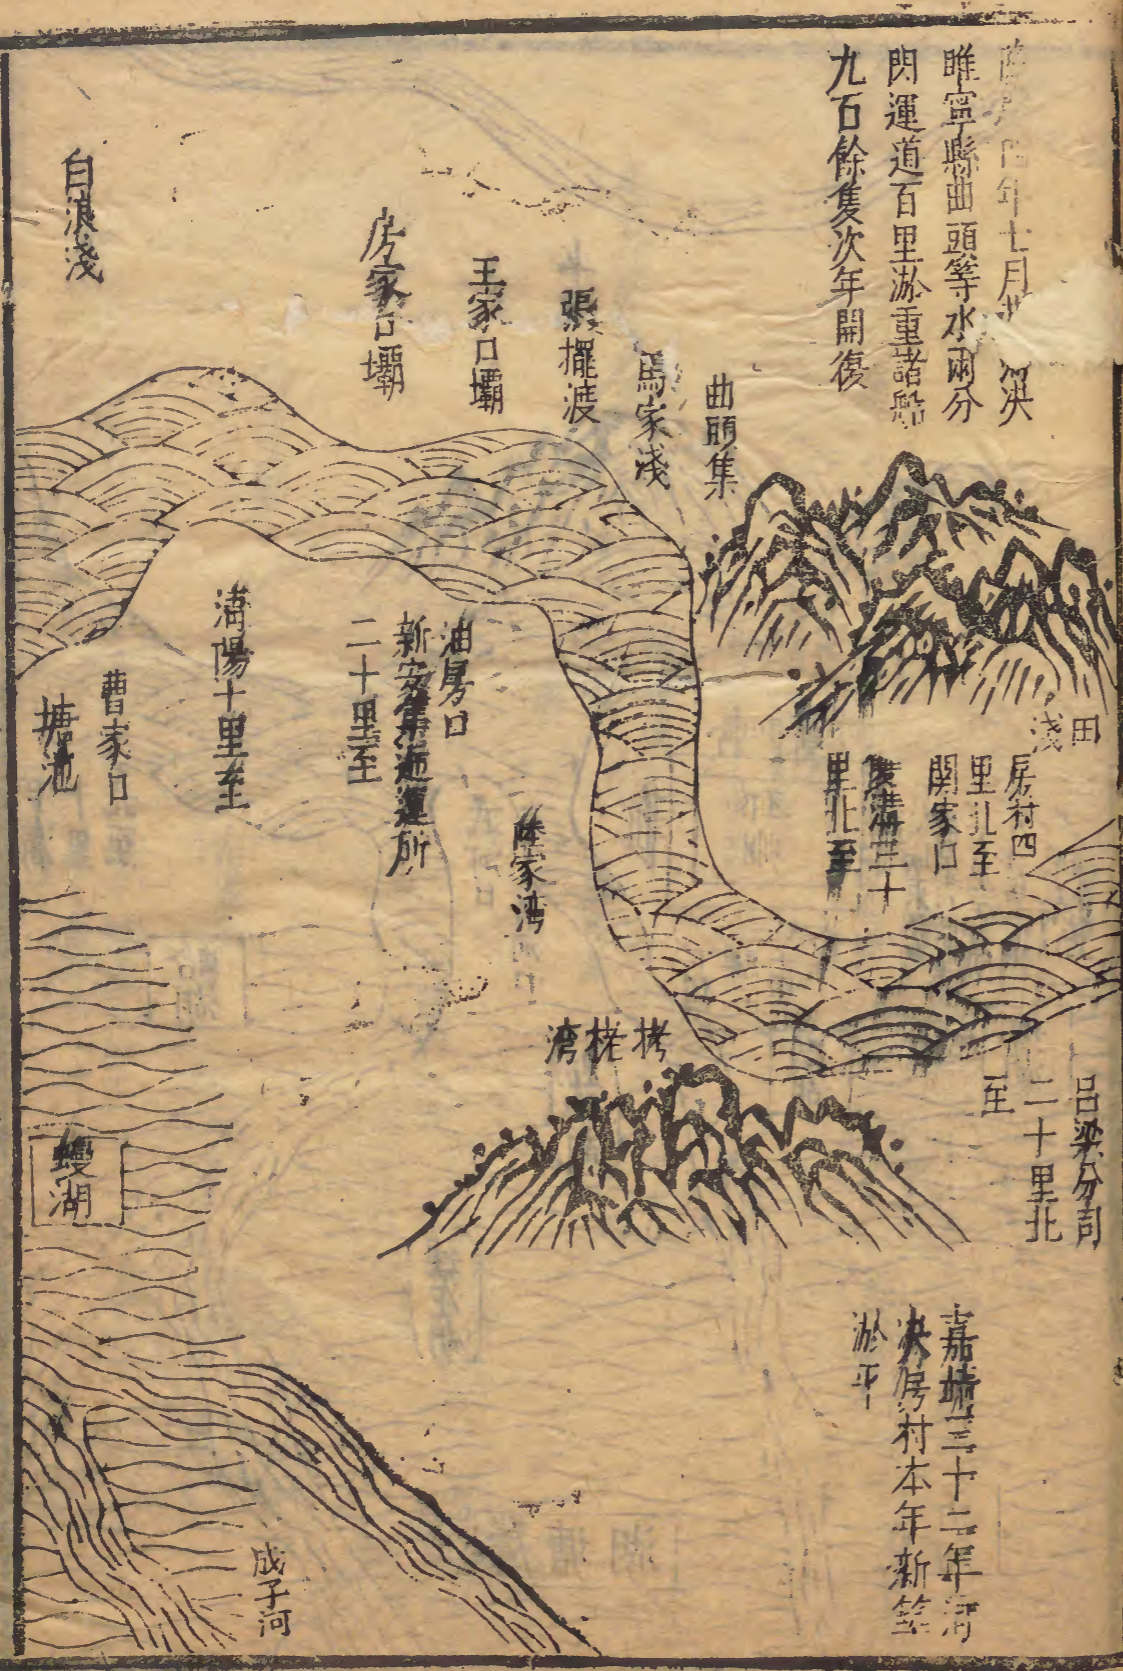 年七月
睢寧縣曲頭等水兩分
閃運道百里淤重諸船
九百餘隻次年開復
曲頭集
馬家淺
張擺渡
王家口壩
房家口壩
白浪淺
田
淺
房村四
里北至
關家口
雙溝三十
里北至
油房口
新安集遞運所
二十里至
溝陽十里至
曹家口
塘池
陸家湾
栲栳湾
呂梁分司
二十里北
至
嘉靖三十二年河
決房村本年新築
淤平
蝗湖
成子河